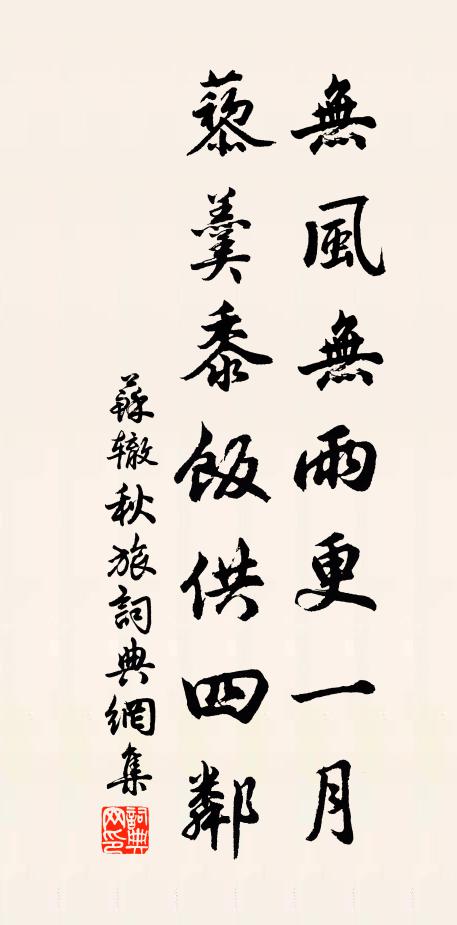 無風無雨更一月
藜羹黍飯供四鄰
蘇轍秋旅詞典網集
詞典網印